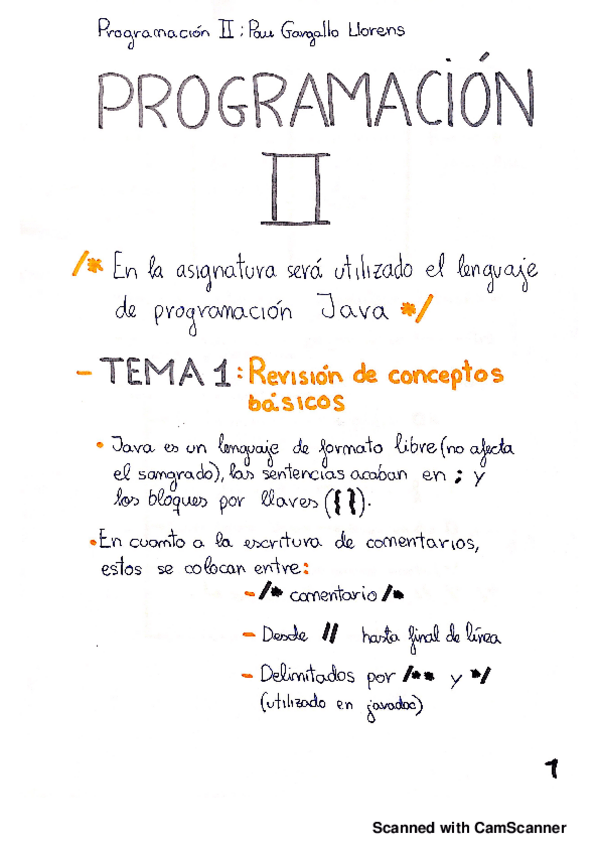 Programación II : Pau Gargallo Llorens
PROGRAMACIÓN
II
/* En la asignatura será utilizado el lenguaje
de programación Java */
- TEMA 1: Revisión de conceptos
básicos
• Java es un lenguaje de formato libre (no afecta
el sangrado), las sentencias acaban en ; y
los bloques por llaves ({ }).
• En cuanto a la escritura de comentarios,
estos se colocan entre:
- /* comentario /*
- Desde // hasta final de línea
- Delimitados por /** y */
(utilizado en javadoc)
1
Scanned with CamScanner